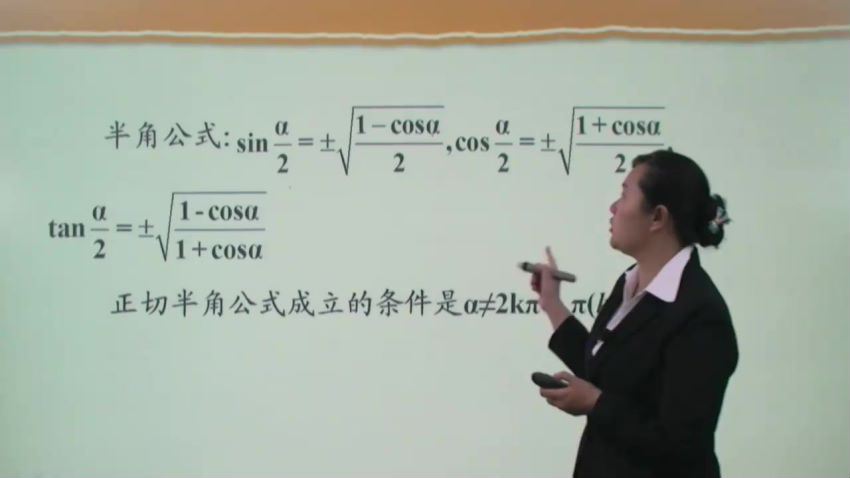 半角公式: sin α/2 = ±√((1−cosα)/2), cos α/2 = ±√((1+cosα)/2)
tan α/2 = ±√((1-cosα)/(1+cosα))
正切半角公式成立的条件是α≠2kπ π(